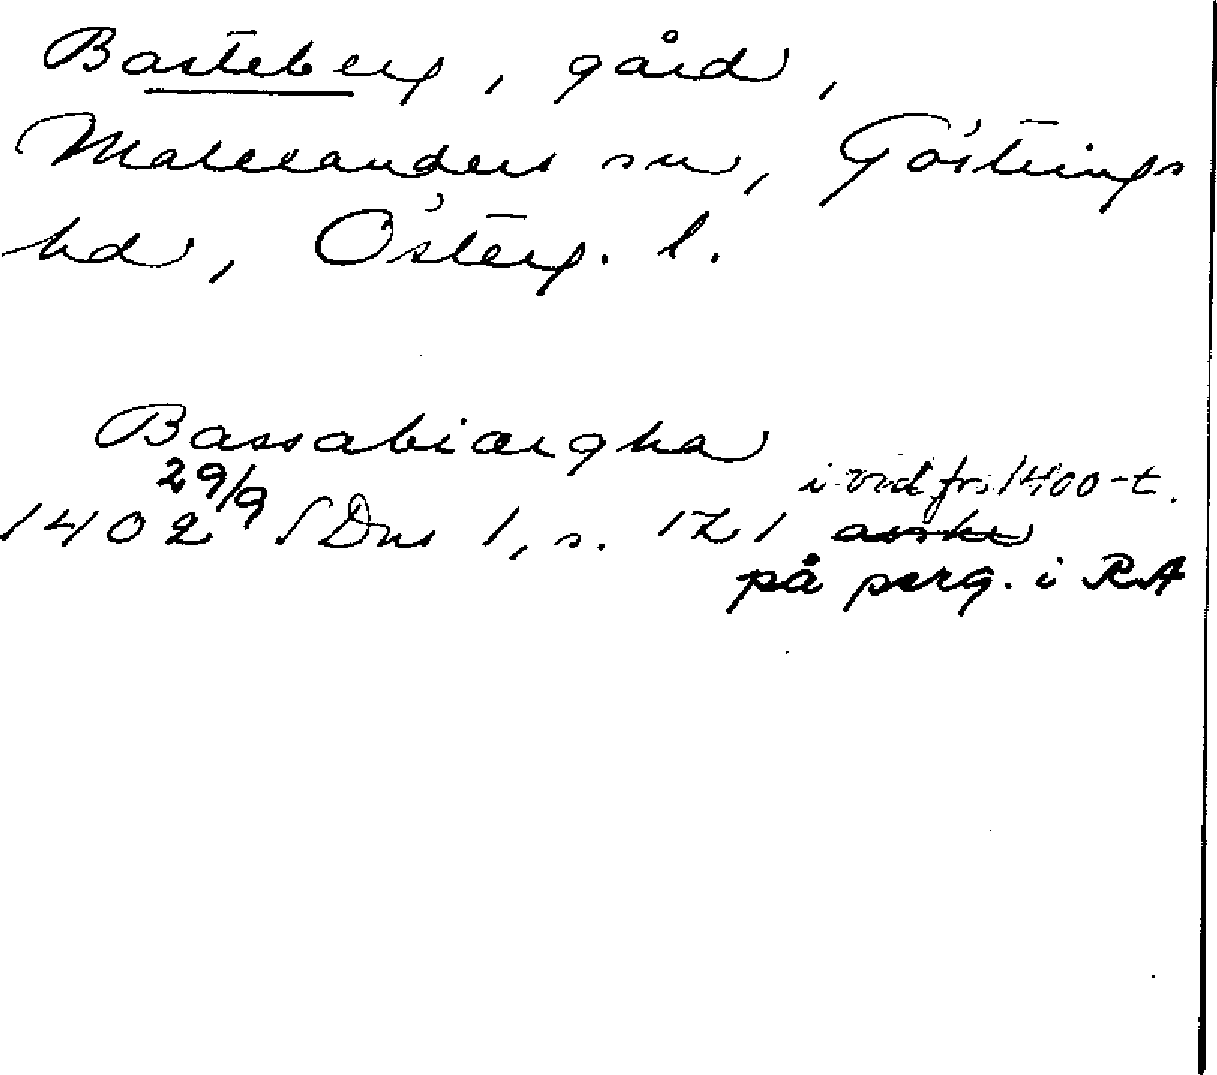 Basteberg, gård,
Malexanders sn, Göstrings
hd, Österg. l.
Bassabiærgha
1402 29/9 SDns 1, s. 121 avskr i vid fr. 1400-t.
på perg. i RA